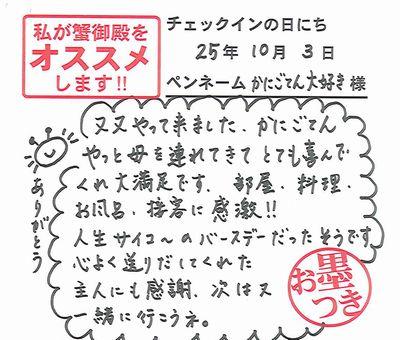 私が蟹御殿を
オススメ
します!!
チェックインの日にち
25年 10月 3日
ペンネーム かにごてん大好き 様
又又やって来ました、かにごてん
やっと母を連れてきて とても喜んで
くれ大満足です. 部屋、料理、
お風呂、接客に感激!!
人生サイコ〜のバースデーだったそうです
心よく送りだしてくれた
主人にも感謝、次は又
一緒に行こうネ。
ありがとう
お墨
つき